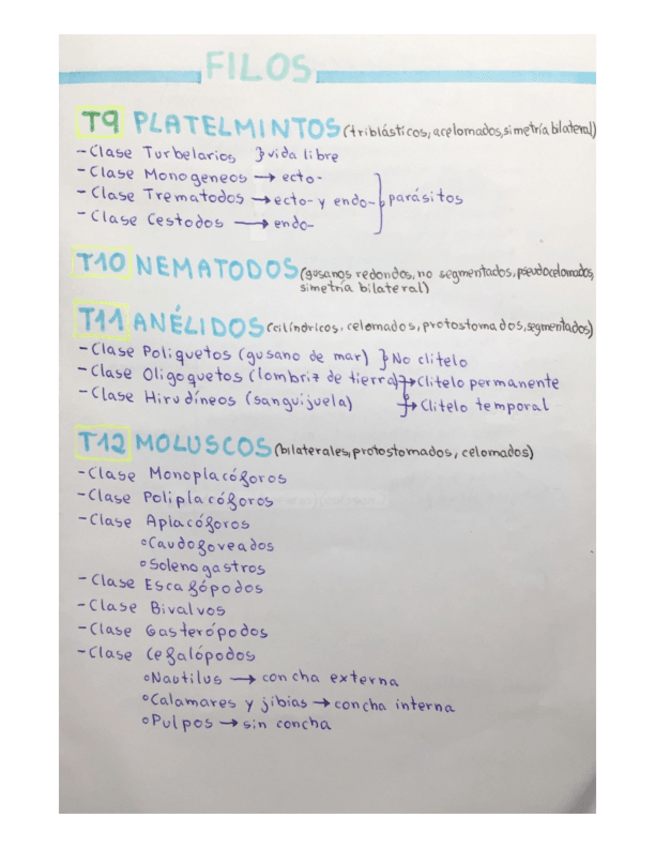 FILOS
T9 PLATELMINTOS (triblásticos, acelomados, simetría bilateral)
- Clase Turbelarios } vida libre
- Clase Monogeneos → ecto-
- Clase Trematodos → ecto- y endo- } parásitos
- Clase Cestodos → endo-
T10 NEMATODOS (gusanos redondos, no segmentados, pseudocelomados,
simetría bilateral)
T11 ANÉLIDOS (cilíndricos, celomados, protostomados, segmentados)
- Clase Poliquetos (gusano de mar) } No clitelo
- Clase Oligoquetos (lombriz de tierra) → Clitelo permanente
- Clase Hirudíneos (sanguijuela) → Clitelo temporal
T12 MOLUSCOS (bilaterales, protostomados, celomados)
- Clase Monoplacóforos
- Clase Poliplacóforos
- Clase Aplacóforos
° Caudofoveados
° Solenogastros
- Clase Escafópodos
- Clase Bivalvos
- Clase Gasterópodos
- Clase Cefalópodos
° Nautilus → concha externa
° Calamares y jibias → concha interna
° Pulpos → sin concha